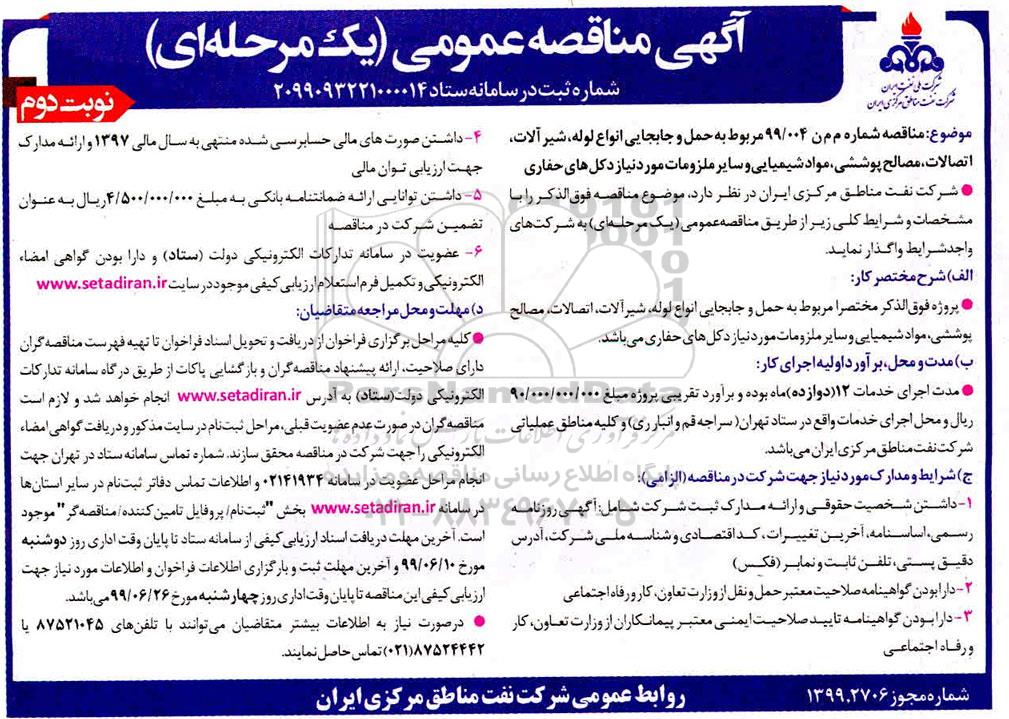 آگهی مناقصه عمومی (یک مرحله‌ای)
شماره ثبت در سامانه ستاد ۲۰۹۹۰۹۳۲۲۱۰۰۰۰۱۴
شرکت ملی نفت ایران
شرکت نفت مناطق مرکزی ایران
نوبت دوم
موضوع: مناقصه شماره م م ن ۹۹/۰۰۴ مربوط به حمل و جابجایی انواع لوله، شیر آلات،
اتصالات، مصالح پوششی، مواد شیمیایی و سایر ملزومات مورد نیاز دکل های حفاری
● شرکت نفت مناطق مرکزی ایران در نظر دارد، موضوع مناقصه فوق الذکر را با
مشخصات و شرایط کلی زیر از طریق مناقصه عمومی (یک مرحله‌ای) به شرکت‌های
واجد شرایط واگذار نماید.
الف) شرح مختصر کار:
● پروژه فوق الذکر مختصرا مربوط به حمل و جابجایی انواع لوله، شیر آلات، اتصالات، مصالح
پوششی، مواد شیمیایی و سایر ملزومات مورد نیاز دکل های حفاری می‌باشد.
ب) مدت و محل، برآورد اولیه اجرای کار:
● مدت اجرای خدمات ۱۲ (دوازده) ماه بوده و برآورد تقریبی پروژه مبلغ ۹۰/۰۰۰/۰۰۰/۰۰۰
ریال و محل اجرای خدمات واقع در ستاد تهران (سراجه قم و انبار ری) و کلیه مناطق عملیاتی
شرکت نفت مناطق مرکزی ایران می‌باشد.
ج) شرایط و مدارک مورد نیاز جهت شرکت در مناقصه (الزامی):
۱- داشتن شخصیت حقوقی و ارائه مدارک ثبت شرکت شامل: آگهی روزنامه
رسمی، اساسنامه، آخرین تغییرات، کد اقتصادی و شناسه ملی شرکت، آدرس
دقیق پستی، تلفن ثابت و نمابر (فکس)
۲- دارا بودن گواهینامه صلاحیت معتبر حمل و نقل از وزارت تعاون، کار و رفاه اجتماعی
۳- دارا بودن گواهینامه تایید صلاحیت ایمنی معتبر پیمانکاران از وزارت تعاون، کار
و رفاه اجتماعی
۴- داشتن صورت های مالی حسابرسی شده منتهی به سال مالی ۱۳۹۷ و ارائه مدارک
جهت ارزیابی توان مالی
۵- داشتن توانایی ارائه ضمانتنامه بانکی به مبلغ ۴/۵۰۰/۰۰۰/۰۰۰ ریال به عنوان
تضمین شرکت در مناقصه
۶- عضویت در سامانه تدارکات الکترونیکی دولت (ستاد) و دارا بودن گواهی امضاء
الکترونیکی و تکمیل فرم استعلام ارزیابی کیفی موجود در سایت www.setadiran.ir
د) مهلت و محل مراجعه متقاضیان:
● کلیه مراحل برگزاری فراخوان از دریافت و تحویل اسناد فراخوان تا تهیه فهرست مناقصه گران
دارای صلاحیت، ارائه پیشنهاد مناقصه گران و بازگشایی پاکات از طریق درگاه سامانه تدارکات
الکترونیکی دولت (ستاد) به آدرس www.setadiran.ir انجام خواهد شد و لازم است
مناقصه گران در صورت عدم عضویت قبلی، مراحل ثبت نام در سایت مذکور و دریافت گواهی امضاء
الکترونیکی را جهت شرکت در مناقصه محقق سازند. شماره تماس سامانه ستاد در تهران جهت
انجام مراحل عضویت در سامانه ۰۲۱۴۱۹۳۴ و اطلاعات تماس دفاتر ثبت‌نام در سایر استان‌ها
در سامانه www.setadiran.ir بخش "ثبت‌نام/ پروفایل تامین کننده/ مناقصه گر" موجود
است. آخرین مهلت دریافت اسناد ارزیابی کیفی از سامانه ستاد تا پایان وقت اداری روز دوشنبه
مورخ ۹۹/۰۶/۱۰ و آخرین مهلت ثبت و بارگزاری اطلاعات فراخوان و اطلاعات مورد نیاز جهت
ارزیابی کیفی این مناقصه تا پایان وقت اداری روز چهارشنبه مورخ ۹۹/۰۶/۲۶ می‌باشد.
● درصورت نیاز به اطلاعات بیشتر متقاضیان می‌توانند با تلفن‌های ۸۷۵۲۱۰۴۵ یا
۸۷۵۲۴۴۴۲ (۰۲۱) تماس حاصل نمایند.
ParsNamadData
پایگاه اطلاع رسانی مناقصه و مزایده
۰۲۱-۸۸۳۴۹۶۷۰-۵
شماره مجوز ۱۳۹۹.۲۷۰۶
روابط عمومی شرکت نفت مناطق مرکزی ایران